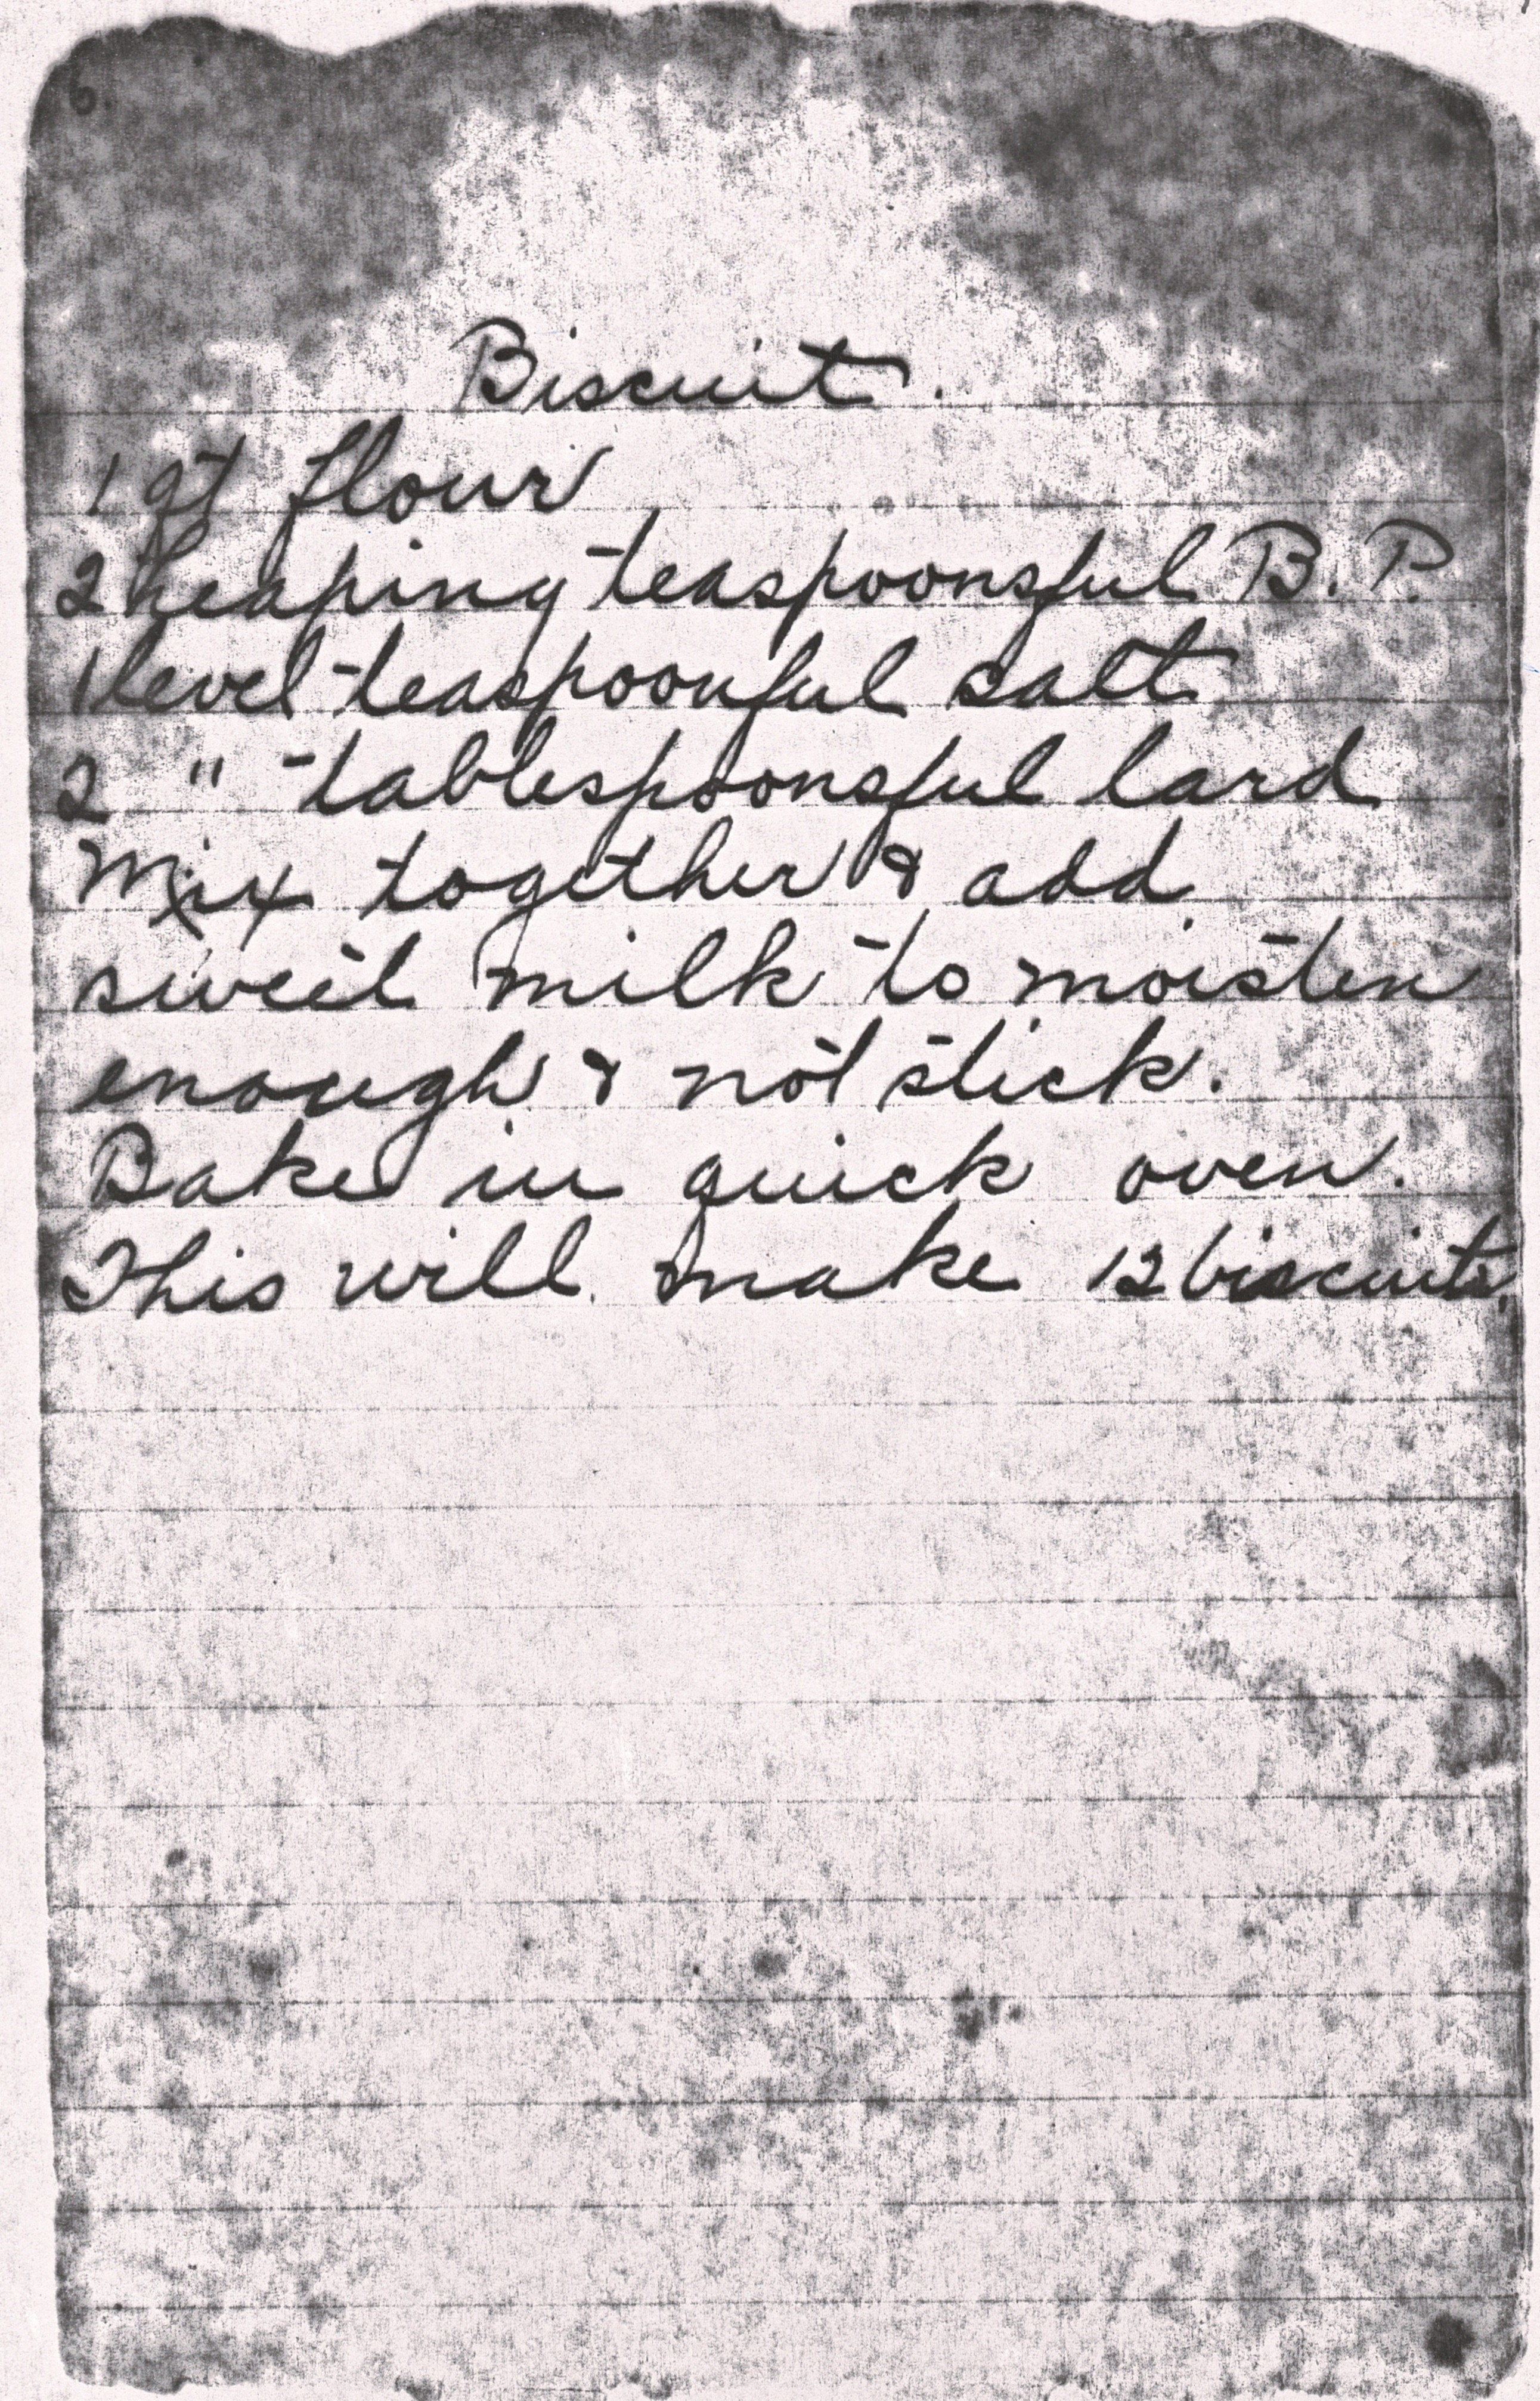 6.
Biscuit.
1 qt flour
2 heaping teaspoonsful B. P.
1 level teaspoonful salt
2 " tablespoonsful lard
Mix together & add
sweet milk to moisten
enough & not stick.
Bake in quick oven.
This will make 12 biscuits.